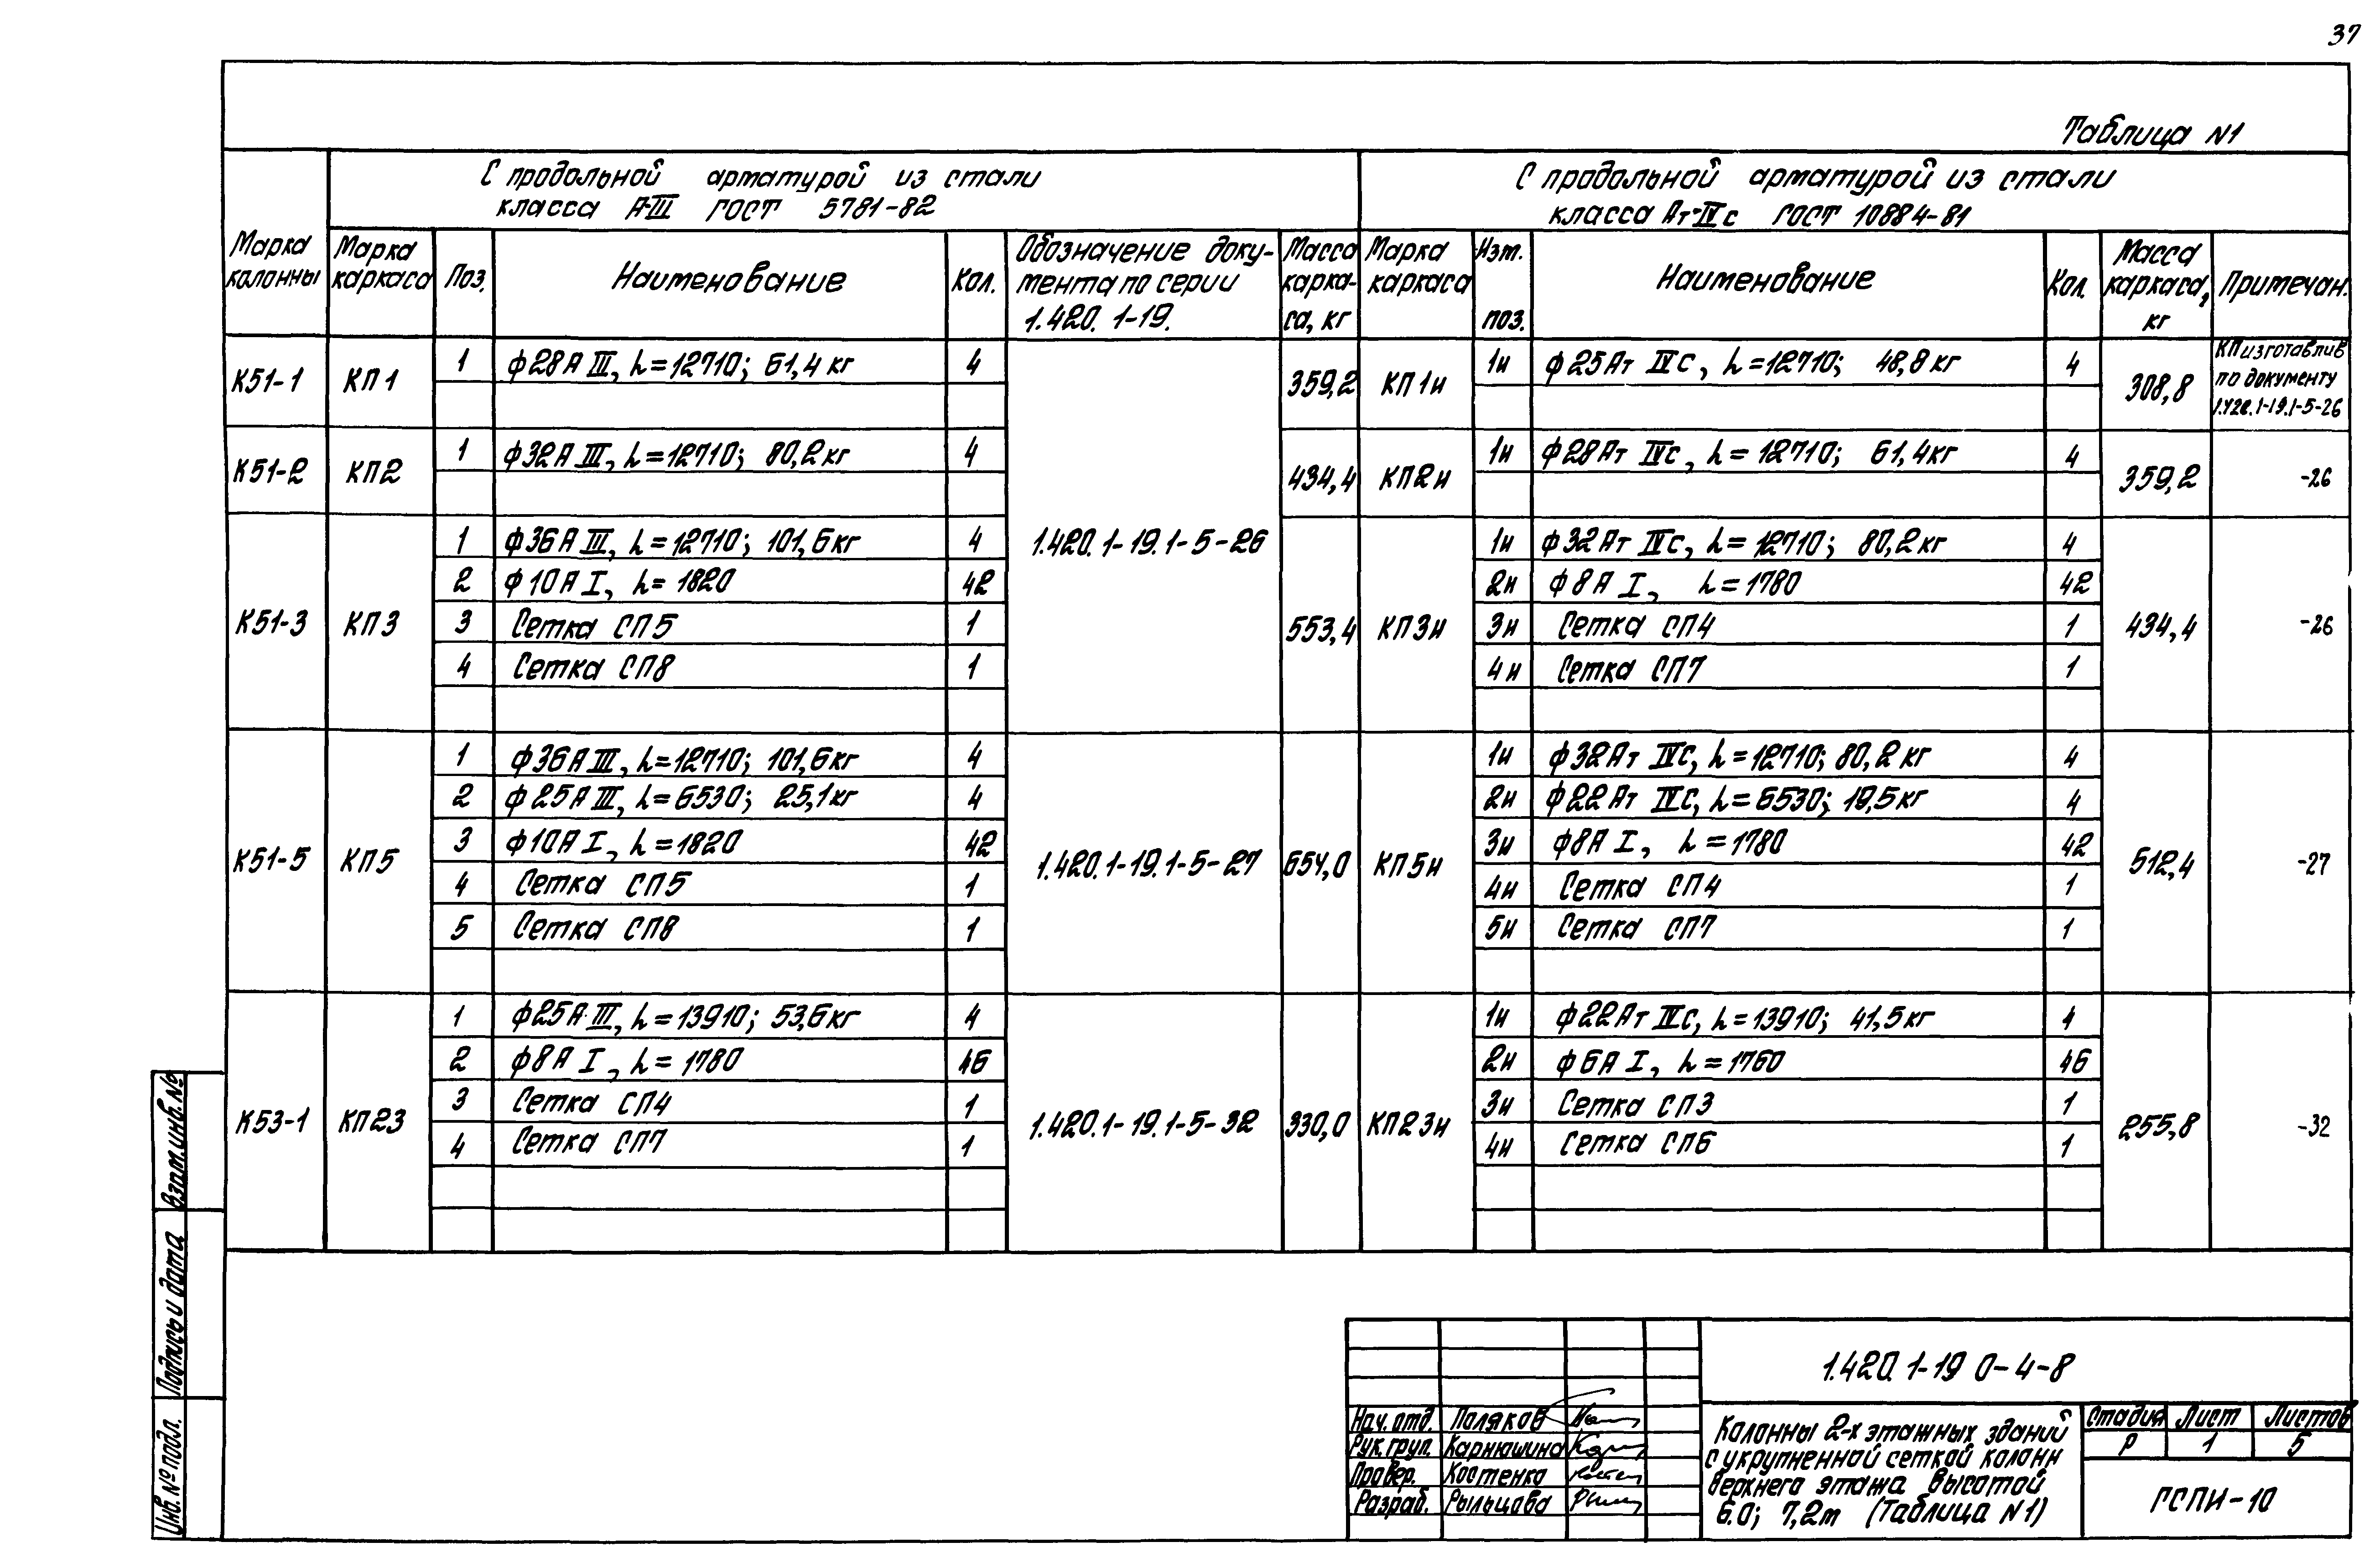 37
Таблица N1
С продольной арматурой из стали
класса А-III ГОСТ 5781-82
С продольной арматурой из стали
класса Ат-IVс ГОСТ 10884-81
Марка
колонны
Марка
каркаса
Поз.
Наименование
Кол.
Обозначение доку-
мента по серии
1.420.1-19.
Масса
карка-
са, кг
Марка
каркаса
Изм.
поз.
Наименование
Кол.
Масса
каркаса,
кг
Примечан.
К51-1 КП1 1 ф28А III, L=12710; 61,4кг 4 359,2 КП1и 1и ф25Ат IVС, L=12710; 48,8кг 4 308,8
КП изготавлив
по документу
1.420.1-19.1-5-26
К51-2 КП2 1 ф32А III, L=12710; 80,2кг 4 434,4 КП2и 1и ф28Ат IVс, L=12710; 61,4кг 4 359,2 -26
1 ф36А III, L=12710; 101,6кг 4 1.420.1-19.1-5-26 1и ф32Ат IVс, L=12710; 80,2кг 4
2 ф10А I, L=1820 42 2и ф8А I, L=1780 42
К51-3 КП3 3 Сетка СП5 1 553,4 КП3и 3и Сетка СП4 1 434,4 -26
4 Сетка СП8 1 4и Сетка СП7 1
1 ф36А III, L=12710; 101,6кг 4 1и ф32Ат IVС, L=12710; 80,2кг 4
2 ф25А III, L=6530; 25,1кг 4 2и ф22Ат IVС, L=6530; 19,5кг 4
3 ф10А I, L=1820 42 3и ф8А I, L=1780 42
К51-5 КП5 1.420.1-19.1-5-27 654,0 КП5и 512,4 -27
4 Сетка СП5 1 4и Сетка СП4 1
5 Сетка СП8 1 5и Сетка СП7 1
1 ф25А III, L=13910; 53,6кг 4 1и ф22Ат IVС, L=13910; 41,5кг 4
2 ф8А I, L=1780 46 2и ф6А I, L=1760 46
3 Сетка СП4 1 3и Сетка СП3 1
К53-1 КП23 1.420.1-19.1-5-32 330,0 КП23и 255,8 -32
4 Сетка СП7 1 4и Сетка СП6 1
Взам.инв.№
Подпись и дата
Инв.№подл.
1.420.1-19 0-4-8
Нач.отд. Поляков
Рук.груп. Карнюшина
Провер. Костенко
Разраб. Рыльцова
Колонны 2-х этажных зданий
с укрупненной сеткой колонн
верхнего этажа высотой
6.0; 7,2м (Таблица N1)
Стадия Лист Листов
Р 1 5
ГСПИ-10